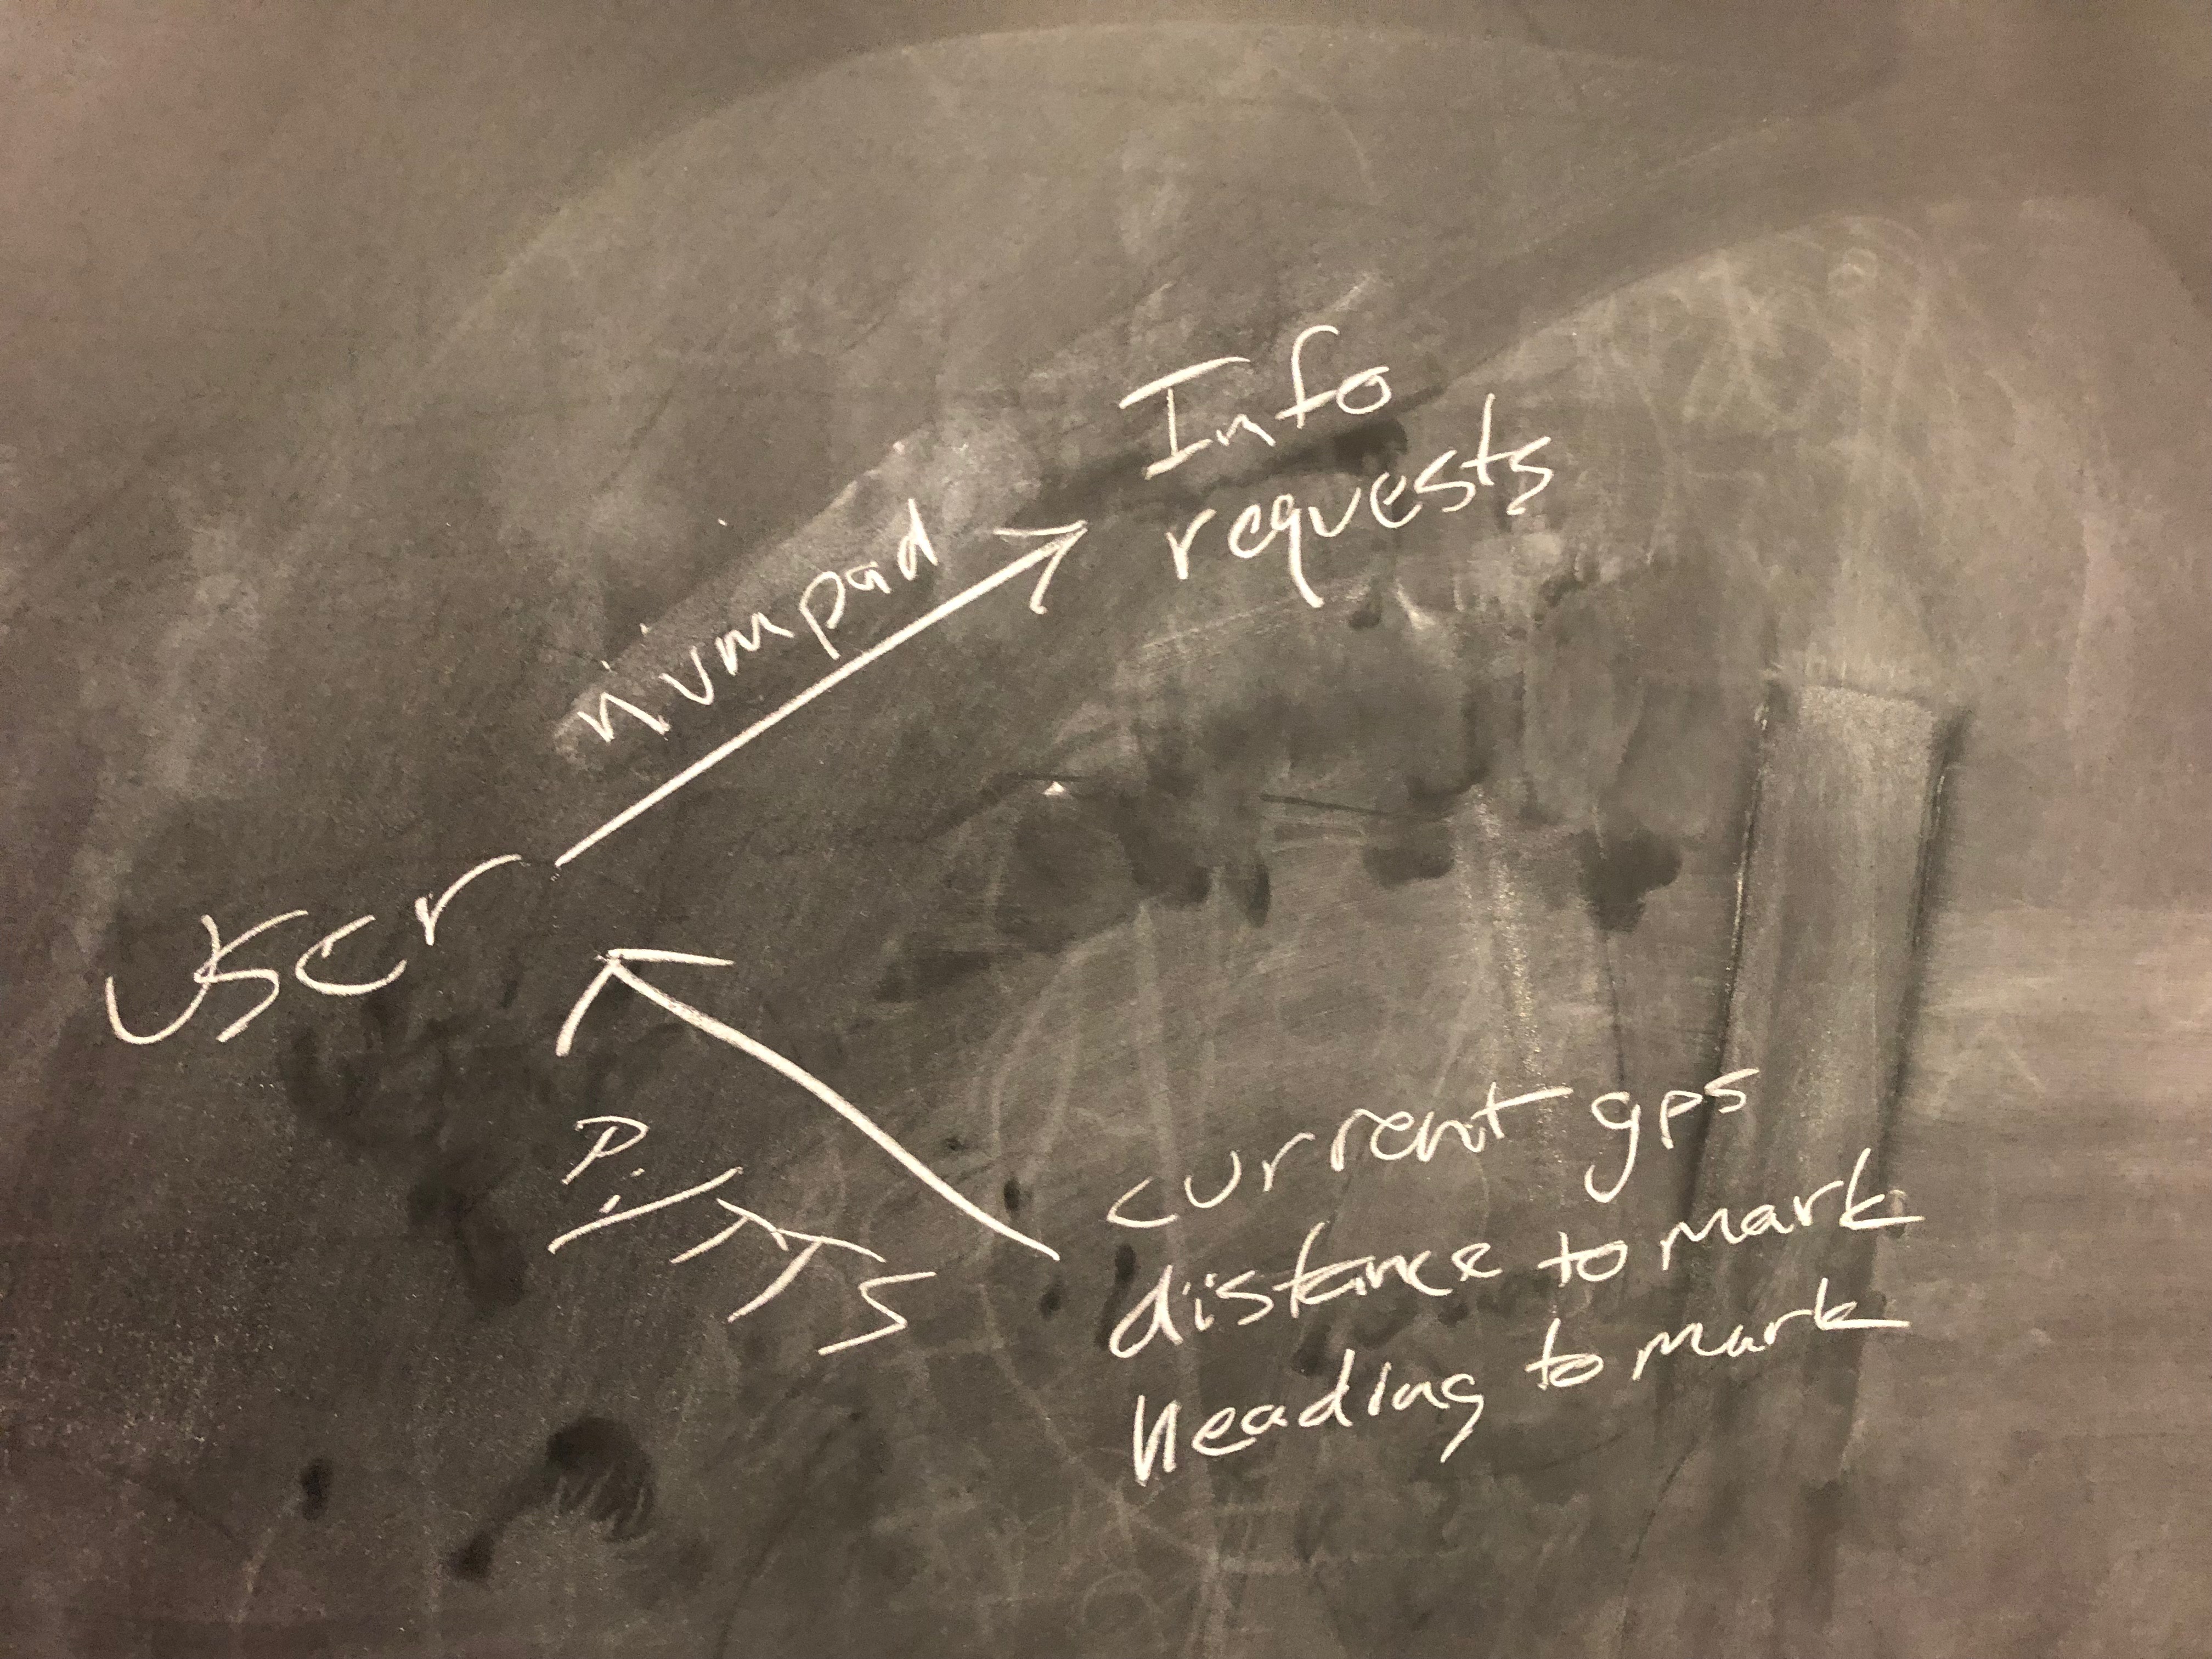 Info
requests
numpad
user
Pi TTS
current gps
distance to mark
heading to mark